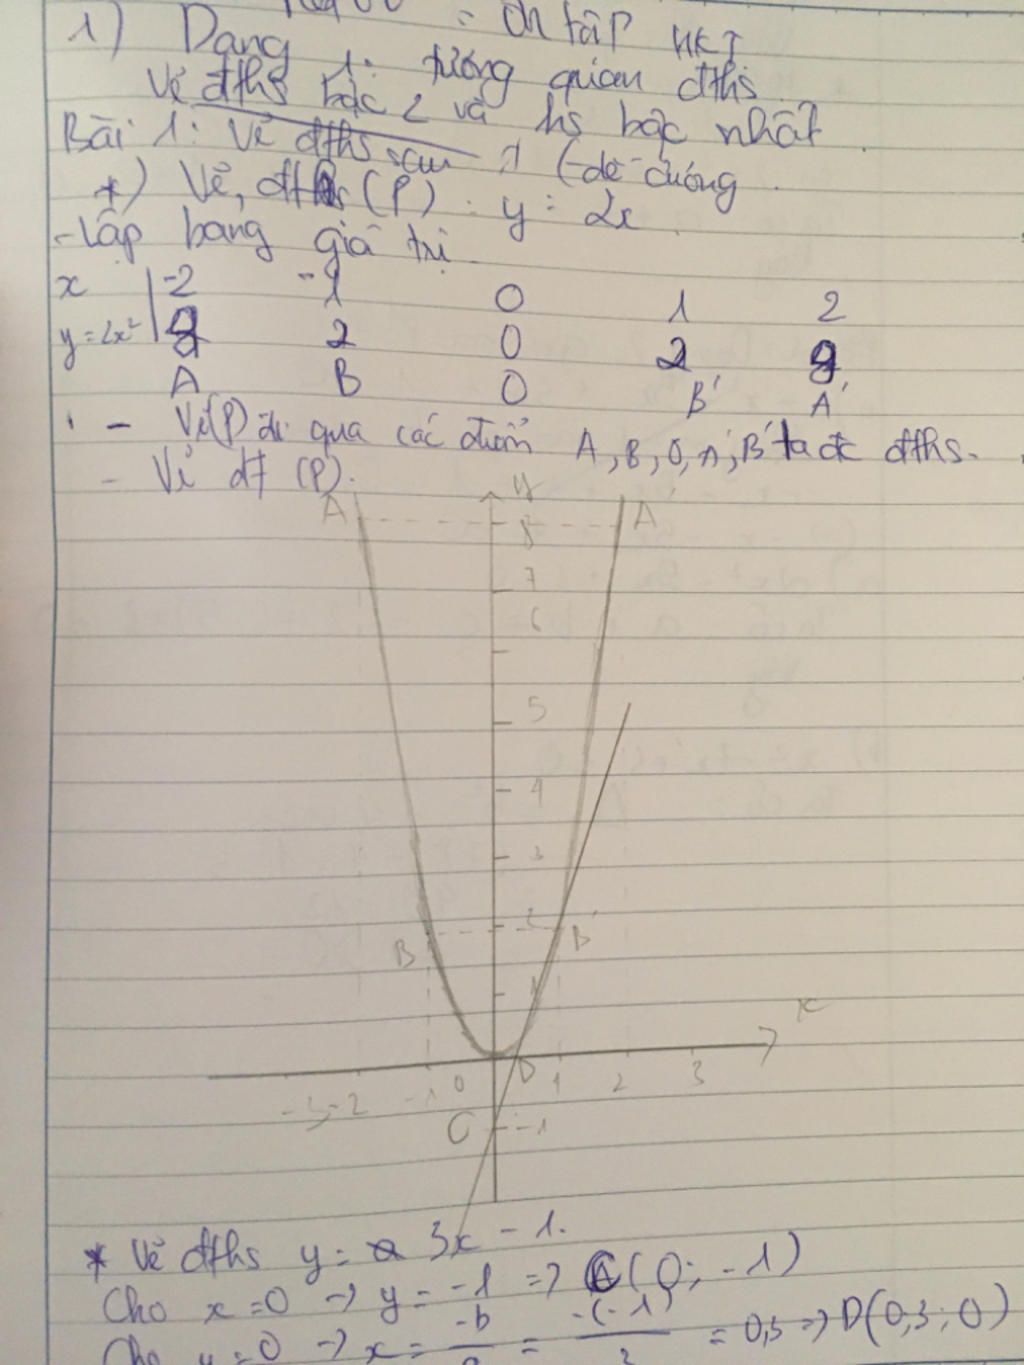 = ôn tập HKI
1) Dạng 1: tương quan đths
Vẽ đths bậc 2 và hs bậc nhất
Bài 1: Vẽ đths sau 1 (đề cương
*) Vẽ, đths (P) : y = 2x
- Lập bảng giá trị
x -2 -1 0 1 2
y=2x² 8 2 0 2 8
A B 0 B' A'
- Vẽ (P) đi qua các điểm A, B, 0, A', B' ta đc đths.
- Vẽ đt (P).
A y A'
8
7
6
5
4
3
B 2 B'
1
x
-3 -2 -1 0 D 1 2 3
C -1
* Vẽ đths y = 3x - 1.
Cho x=0 → y = -1 => C(0; -1)
Cho y=0 → x = -b = -(-1) = 0,3 → D(0,3; 0)